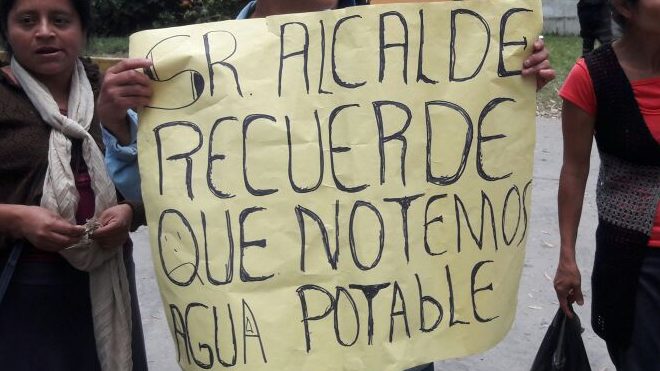 SR. ALCALDE
RECUERDE
QUE NOTEMOS
AGUA POTAbLE